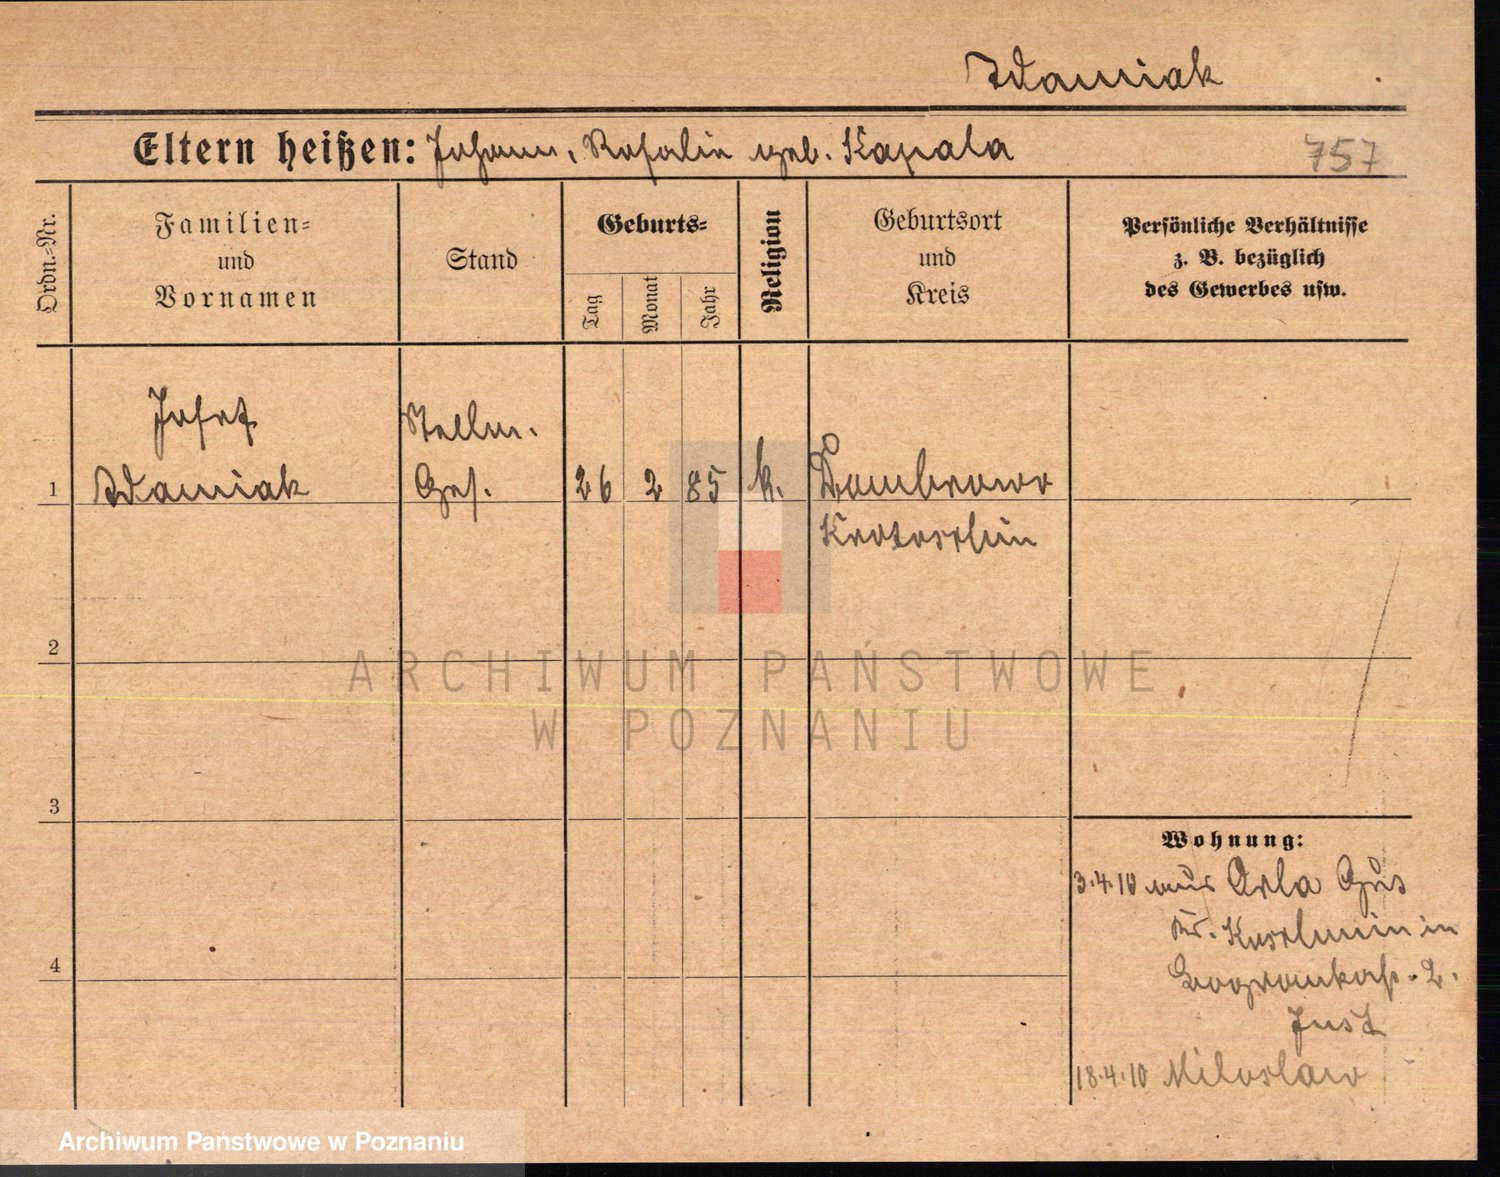 Zdaniak
Eltern heißen: Johann, Rosalie geb. Kapala
757
Ordn.-Nr.
Familien-
und
Vornamen
Stand
Geburts-
Tag
Monat
Jahr
Religion
Geburtsort
und
Kreis
Persönliche Verhältnisse
z. B. bezüglich
des Gewerbes usw.
Josef
Stellm.
1 Zdaniak Ges. 26 2 85 k. Dombrowo
Krotoschin
2
3
4
Wohnung:
3.4.10 aus Orla Gut
Kr. Koschmin in
2.
Just
18.4.10 Miloslaw
ARCHIWUM PAŃSTWOWE
W POZNANIU
Archiwum Państwowe w Poznaniu